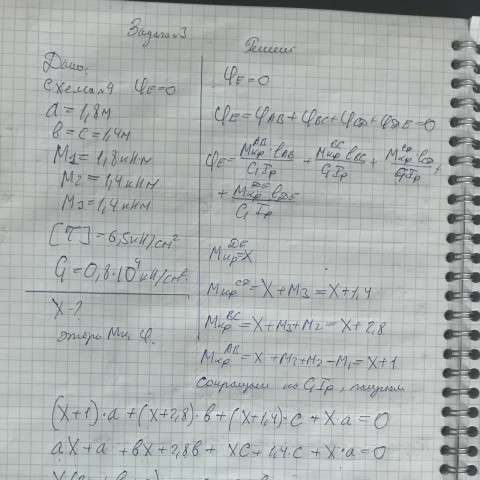 Задача 3
Решение
Дано:
схема 9 φE=0
a = 1,8м
в = c = 1,4м
M1 = 1,8кНм
M2 = 1,4кНм
M3 = 1,4кНм
[τ] = 6,5кН/см²
G = 0,8·10⁴кН/см²
X-?
φE=0
φE=φAB+φBC+φCD+φDE=0
φE= Mкр^AB·ℓAB/GIp + Mкр^BC ℓBC/GIp + Mкр^CD ℓCD/GIp +
+ Mкр^DE ℓDE/GIp
Mкр^DE=X
Mкр^CD = X+M3 = X+1,4
Mкр^BC = X+M3+M2 = X+2,8
Mкр^AB = X+M3+M2-M1 = X+1
Сокращаем на GIp, получим
(X+1)·a+(X+2,8)·в+(X+1,4)·c+X·a=0
aX+a+вX+2,8в+Xc+1,4·c+X·a=0